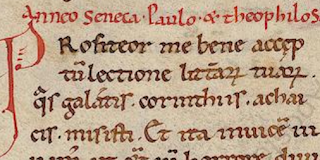 Anneo Seneca · Paulo · & theophilo s
PRofiteor me bene accep
tū lectione litt̄arꝝ tuarꝝ .
q̄s galatis . corinthiis . achai
cis . misisti . Et ita inuicē